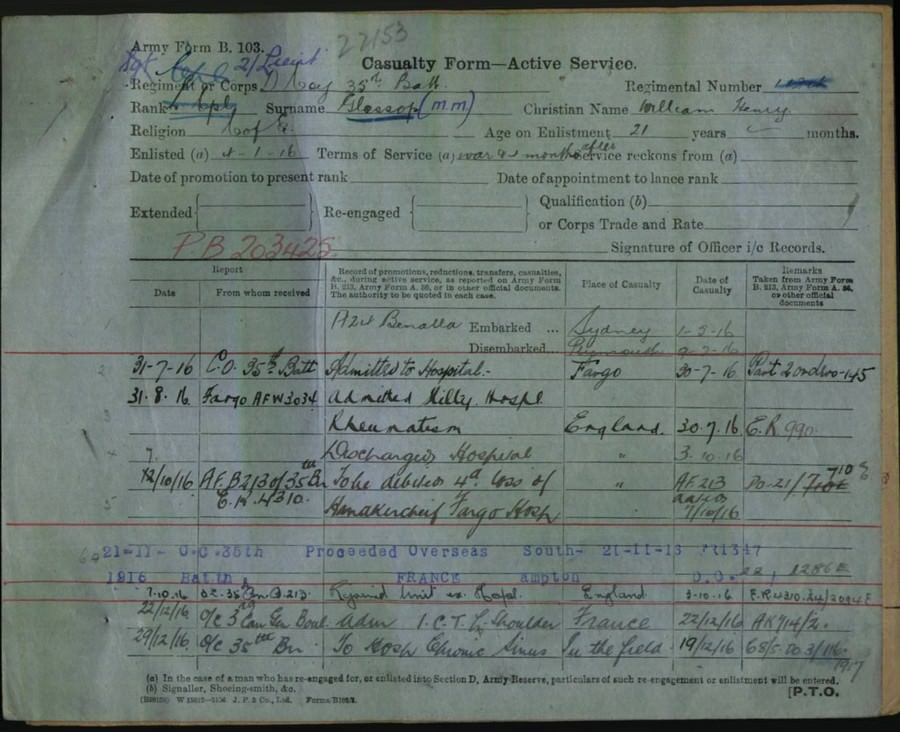 22153
Army Form B. 103.
Sgt Cpl 2/Lieut
Casualty Form—Active Service.
Regiment or Corps D Coy 35th Batt. Regimental Number
Rank Surname Glossop (m.m) Christian Name William Henry
Religion C of E. Age on Enlistment 21 years months.
Enlisted (a) 4-1-16 Terms of Service (a) war & 4 months after Service reckons from (a)
Date of promotion to present rank Date of appointment to lance rank
Extended Re-engaged Qualification (b)
or Corps Trade and Rate
P.B 203425 Signature of Officer i/c Records.
Report
Date From whom received
Record of promotions, reductions, transfers, casualties, &c., during active service, as reported on Army Form B. 213, Army Form A. 36, or in other official documents. The authority to be quoted in each case.
Place of Casualty
Date of Casualty
Remarks Taken from Army Form B. 213, Army Form A. 36, or other official documents
Benalla Embarked ... Sydney 1-5-16
Disembarked... Plymouth 9-7-16
31-7-16 C.O. 35th Batt Admitted to Hospital.- Fargo 30-7-16 Part 2 orders 145
31.8.16. Fargo AFW3034 Admitted Military Hospl.
Rheumatism England. 30.7.16 E.R 990
Discharged Hospital " 3.10.16
12/10/16 A.F.B213 of 35th Bn To be debited 4d loss of " AF 213 DO.21/710E
E.R. 4310. Handkercheif Fargo Hosp 7/10/16
21-11- O.C. 35th Proceeded Overseas South- 21-11-16
1916 Battn FRANCE ampton D.O. 22/ 1286E
7.10.16 OC.35 Bn B.213 Rejoined Unit ex Hospl. England 3-10-16 E.R 4310.24/2094E
22/12/16 O/C 3rd Can Gen Boul. Adm I.C.T. Shoulder France 22/12/16 AK714/2.
29/12/16. O/C 35th Bn To Hosp Chronic Sinus In the field 19/12/16 68/5 DO 3/116.
1917
(a) In the case of a man who has re-engaged for, or enlisted into Section D, Army Reserve, particulars of such re-engagement or enlistment will be entered.
(b) Signaller, Shoeing-smith, &c. [P.T.O.
J. P. & Co., Ltd.